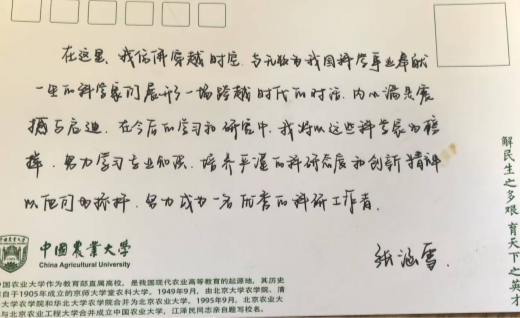 在这里，我仿佛穿越时空，与无数为我国科学事业奉献
一生的科学家们展开了一场跨越时代的对话，内心满是震
撼与启迪，在今后的学习和研究中，我将以这些科学家为榜
样，努力学习专业知识，培养严谨的科研态度和创新精神
以 努力成为一名优秀的科研工作者．
张涵雪．
解民生之多艰 育天下之英才
中国农业大学
China Agricultural University
中国农业大学作为教育部直属高校，是我国现代农业高等教育的起源地，其历史
自于1905年成立的京师大学堂农科大学。1949年9月，由北京大学农学院、清
大学农学院和华北大学农学院合并为北京农业大学。1995年9月，北京农业大
与北京农业工程大学合并成立中国农业大学，江泽民同志亲自题写校名。